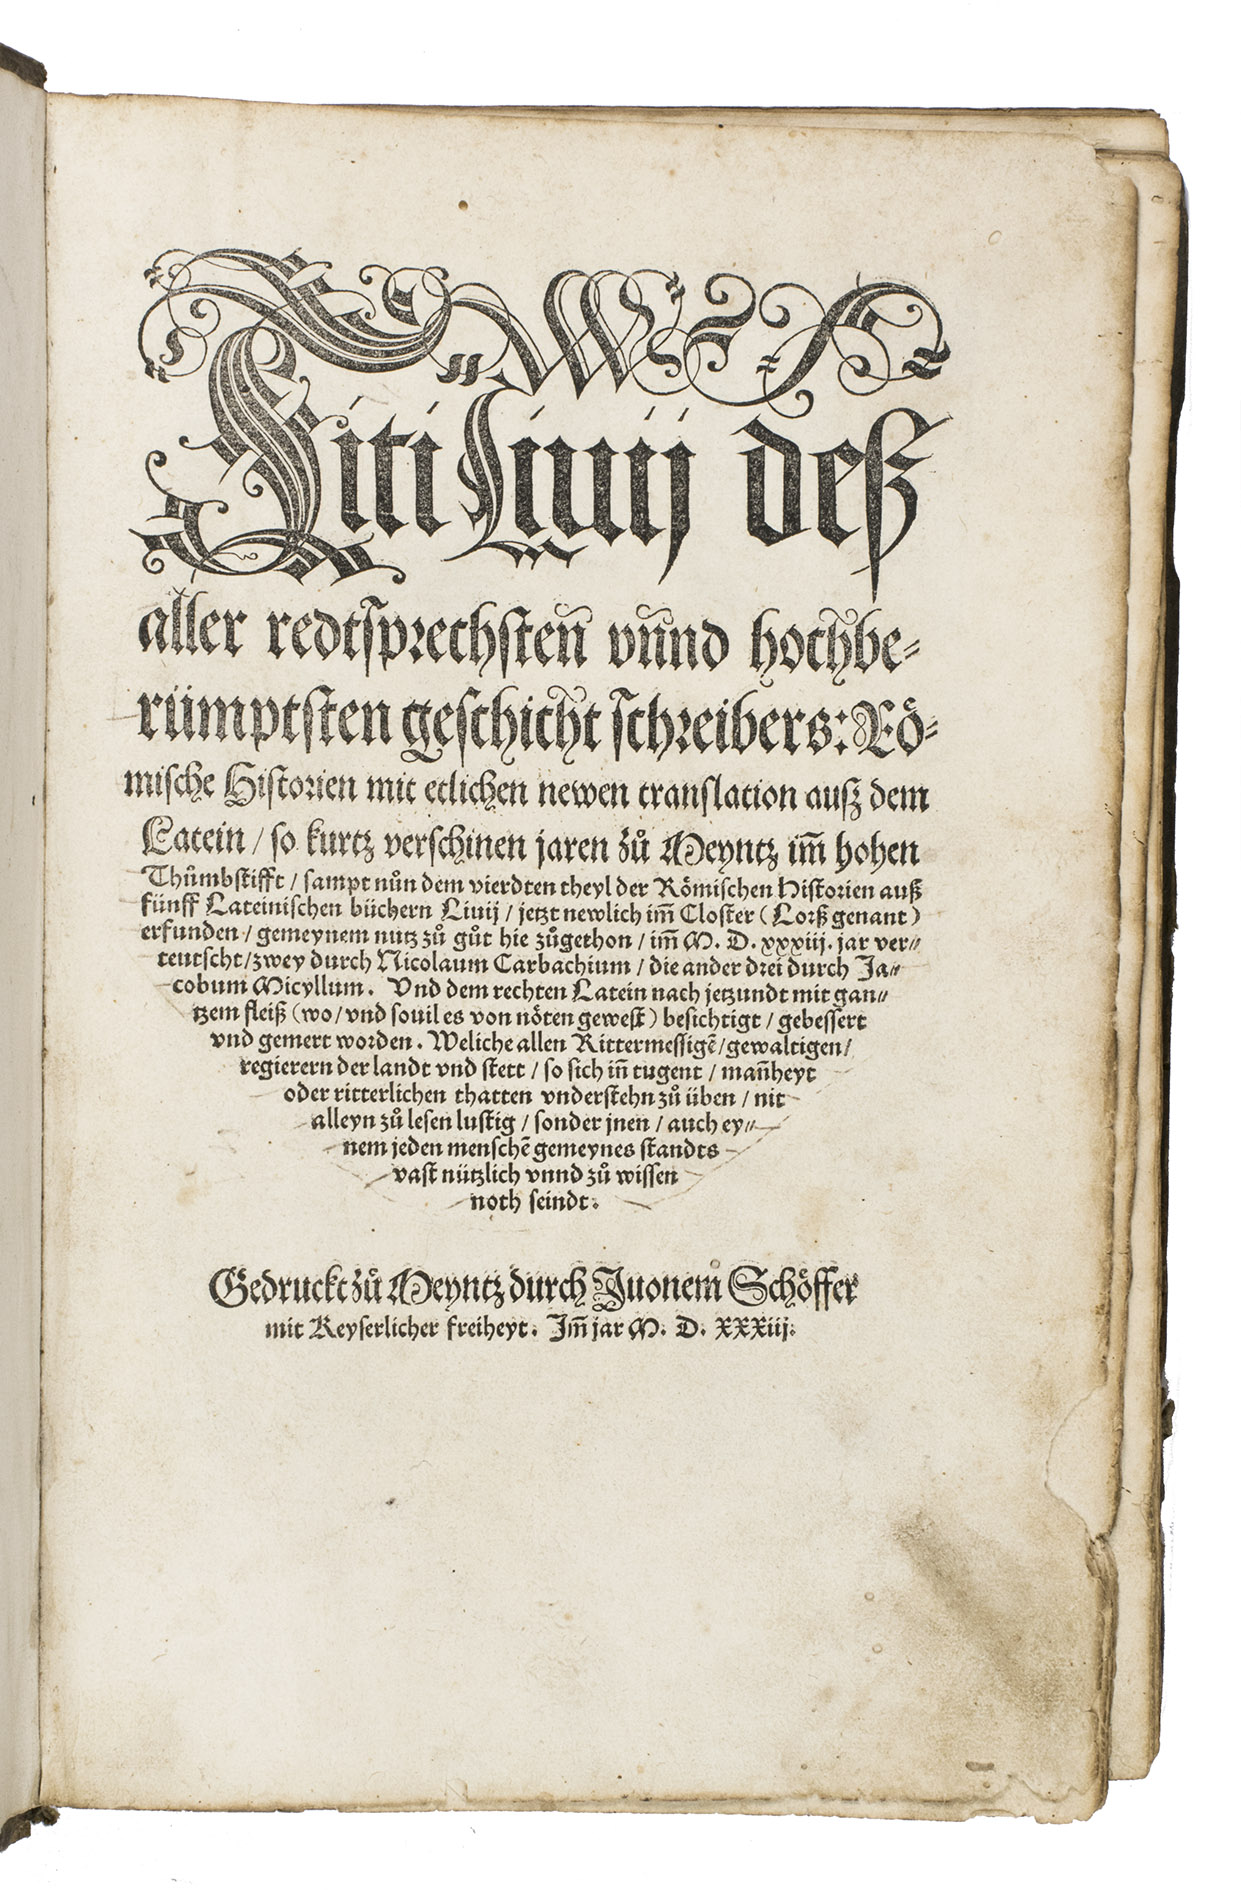 Titi Liuij deß
aller redtsprechsten̄ vn̄nd hochbe⸗
rümptsten geschicht schreibers: Rö⸗
mische Historien mit etlichen newen translation auß dem
Latein / so kurtz verschinen jaren zů Meyntz im̄ hohen
Thůmbstifft / sampt nůn dem vierdten theyl der Römischen Historien auß
fünff Lateinischen büchern Liuij / jetzt newlich im̄ Closter ( Lorß genant )
erfunden / gemeynem nutz zů gůt hie zůgethon / im̄ M. D. xxxiij. jar ver⸗
teutscht / zwey durch Nicolaum Carbachium / die ander drei durch Ja⸗
cobum Micyllum. Vnd dem rechten Latein nach jetzundt mit gan⸗
tzem fleiß ( wo / vnd souil es von nöten gewest ) besichtigt / gebessert
vnd gemert worden. Weliche allen Rittermessigē / gewaltigen /
regierern der landt vnd stett / so sich in̄ tugent / man̄heyt
oder ritterlichen thatten vnderstehn zů üben / nit
alleyn zů lesen lustig / sonder jnen / auch ey⸗
nem jeden menschē gemeynes standts
vast nützlich vnnd zů wissen
noth seindt.
Gedruckt zů Meyntz durch Juonem Schöffer
mit Keyserlicher freiheyt. Im̄ jar M. D. XXXiij.